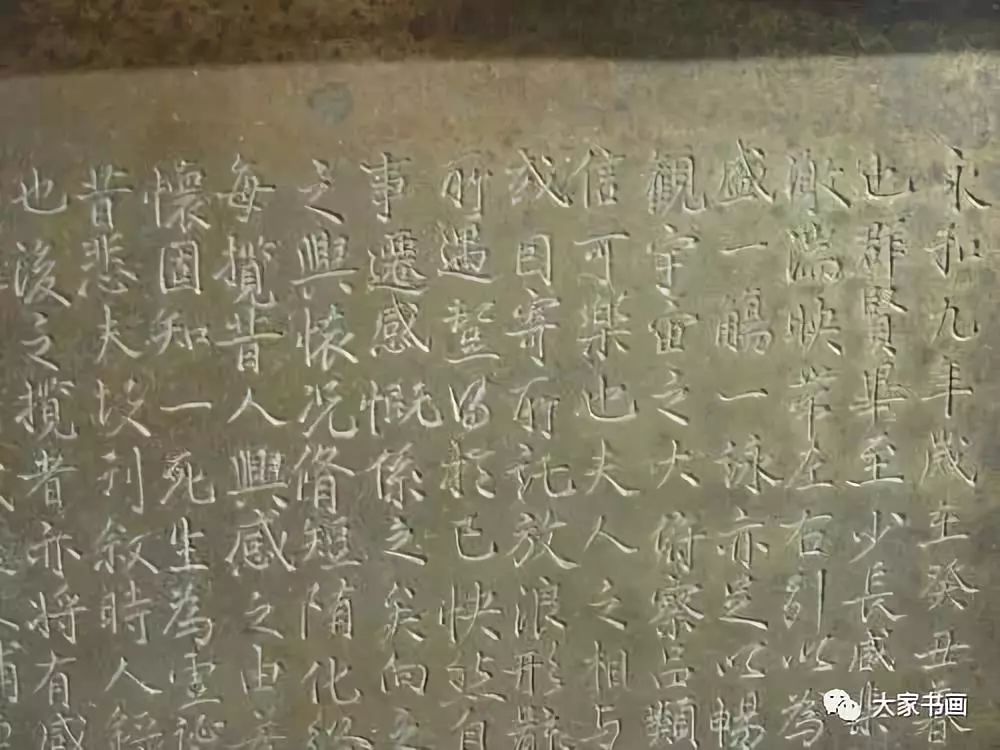 永和九年歲在癸丑暮
也群賢畢至少長咸集
激湍暎帶左右引以為
盛一觴一詠亦足以暢
觀宇宙之大俯察品類
信可樂也夫人之相與
或因寄所託放浪形骸
所遇蹔得於己快然自
事遷感慨係之矣向之
之興懷況脩短隨化終
每攬昔人興感之由若
懷固知一死生為虛誕
昔悲夫故列敘時人錄
也後之攬者亦將有感
大家书画